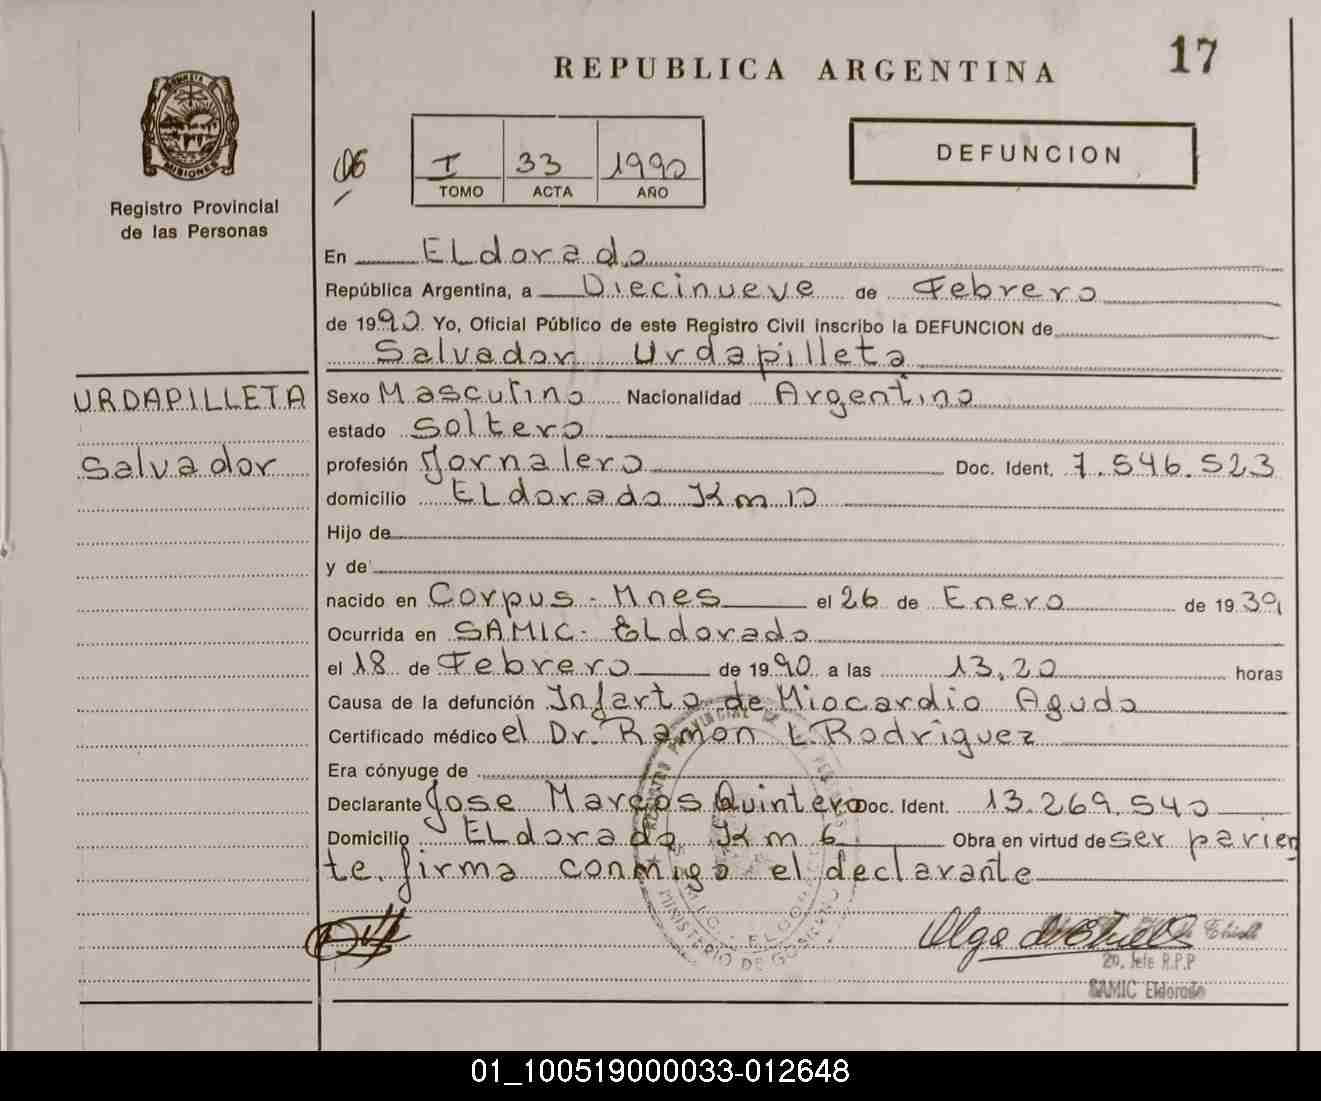 REPUBLICA ARGENTINA
17
MISIONES
Registro Provincial
de las Personas
I 33 1990
TOMO ACTA AÑO
DEFUNCION
En ELdorado
República Argentina, a Diecinueve de Febrero
de 1990. Yo, Oficial Público de este Registro Civil inscribo la DEFUNCION de
Salvador Urdapilleta
URDAPILLETA
Salvador
Sexo Masculino Nacionalidad Argentino
estado Soltero
profesión Jornalero Doc. Ident. 7.546.523
domicilio ELdorado Km 10
Hijo de
y de
nacido en Corpus - Mnes el 26 de Enero de 1939
Ocurrida en SAMIC - ELdorado
el 18 de Febrero de 1990 a las 13,20 horas
Causa de la defunción Infarto de Miocardio Agudo
Certificado médico el Dr. Ramon L. Rodriguez
Era cónyuge de
Declarante Jose Marcos Quintero Doc. Ident. 13.269.540
Domicilio ELdorado Km 6 Obra en virtud de ser parien
te, firma conmigo el declarante
REGISTRO PROVINCIAL DE PERSONAS
MINISTERIO DE GOBIERNO
2o. Jefe R.P.P
SAMIC Eldorado
01_100519000033-012648